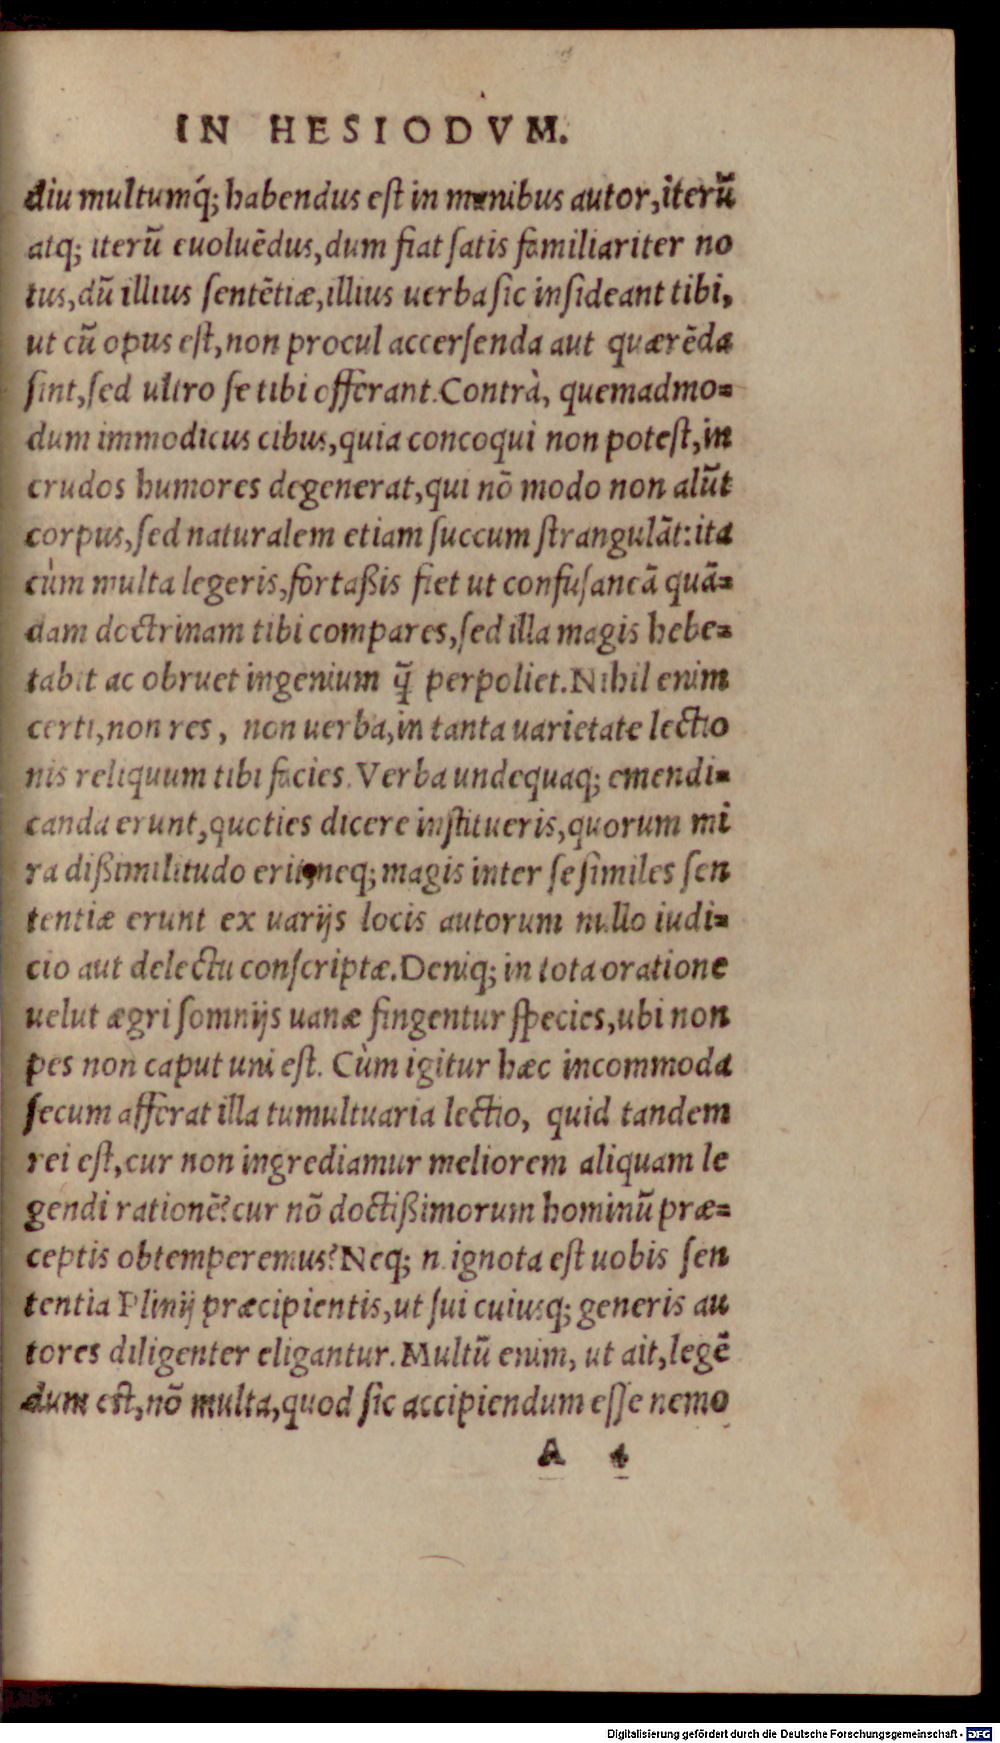 IN HESIODVM.
diu multumq́; habendus est in manibus autor, iterũ
atq; iterũ euoluẽdus, dum fiat satis familiariter no
tus, dũ illius sentẽtiæ, illius uerba sic insideant tibi,
ut cũ opus est, non procul accersenda aut quærẽda
sint, sed ultro se tibi offerant. Contrà, quemadmo=
dum immodicus cibus, quia concoqui non potest, in
crudos humores degenerat, qui nõ modo non alũt
corpus, sed naturalem etiam succum strangulãt: ita
cùm multa legeris, fortaßis fiet ut confusaneã quã=
dam doctrinam tibi compares, sed illa magis hebe=
tabit ac obruet ingenium q̃ perpoliet. Nihil enim
certi, non res, non uerba, in tanta uarietate lectio
nis reliquum tibi facies. Verba undequaq; emendi=
canda erunt, quoties dicere institueris, quorum mi
ra dißimilitudo erit, neq; magis inter se similes sen
tentiæ erunt ex uarijs locis autorum nullo iudi=
cio aut delectu conscriptæ. Deniq; in tota oratione
uelut ægri somnijs uanæ fingentur species, ubi non
pes non caput uni est. Cùm igitur hæc incommoda
secum afferat illa tumultuaria lectio, quid tandem
rei est, cur non ingrediamur meliorem aliquam le
gendi rationẽ? cur nõ doctißimorum hominũ præ=
ceptis obtemperemus? Neq; n. ignota est uobis sen
tentia Plinij præcipientis, ut sui cuiusq; generis au
tores diligenter eligantur. Multũ enim, ut ait, legẽ
dum est, nõ multa, quod sic accipiendum esse nemo
A 4
Digitalisierung gefördert durch die Deutsche Forschungsgemeinschaft - DFG